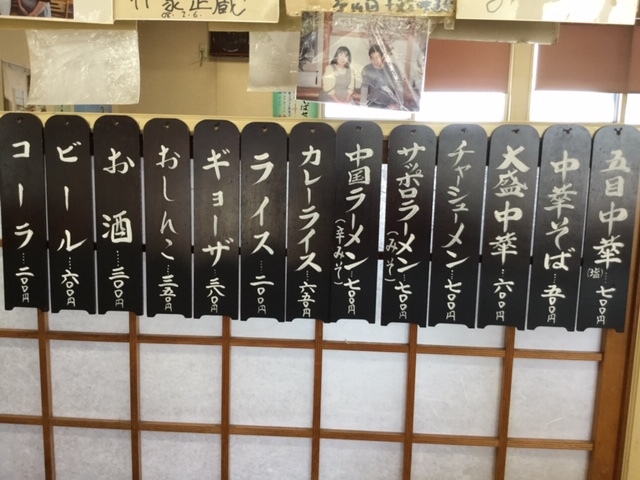 五目中華(塩)七〇〇円
中華そば…五〇〇円
大盛中華…六〇〇円
チャーシューメン…七〇〇円
サッポロラーメン(みそ)七〇〇円
中国ラーメン(辛みそ)七〇〇円
カレーライス…六五〇円
ライス…二〇〇円
ギョーザ…三八〇円
おしんこ…三五〇円
お酒……三〇〇円
ビール…六〇〇円
コーラ…二〇〇円